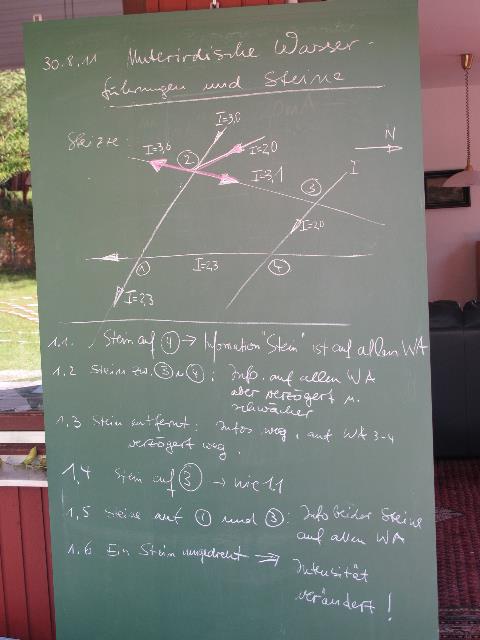 30.8.11 Unterirdische Wasser-
führungen und Steine
Skizze:
I=3,0
I=3,6
②
I=2,0
N
I=3,1
③
I
I=2,0
①
I=2,3
④
I=2,3
1.1. Stein auf ④ → Information "Stein" ist auf allen WA
1.2 Stein zw. ③ u ④: Info. auf allen WA
aber verzögert u.
schwächer
1.3 Stein entfernt: Infos weg, auf WA 3-4
verzögert weg.
1,4 Stein auf ③ → wie 1.1
1,5 Steine auf ① und ③: Info beider Steine
auf allen WA
1.6 Ein Stein umgedreht ⇒ Intensität
verändert!